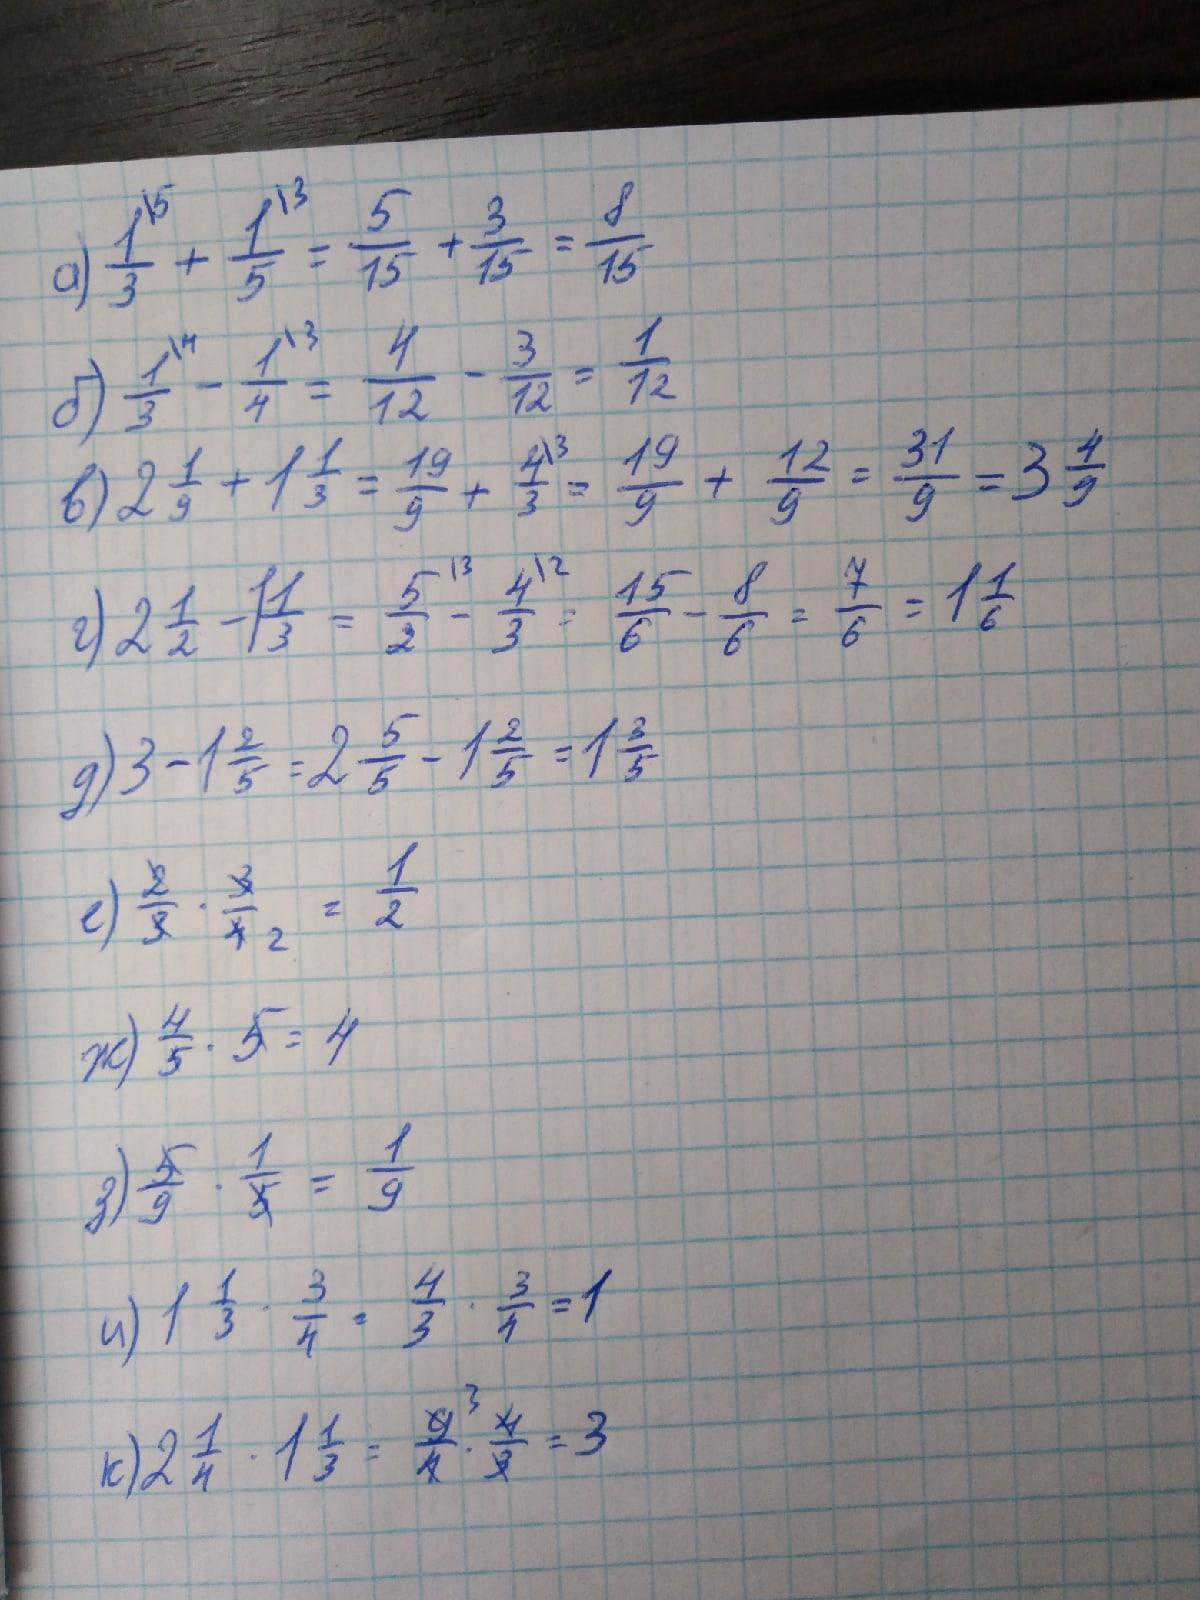 а) 1/3 \5 + 1/5 \3 = 5/15 + 3/15 = 8/15
б) 1/3 \4 - 1/4 \3 = 4/12 - 3/12 = 1/12
в) 2 1/9 + 1 1/3 = 19/9 + 4/3 \3 = 19/9 + 12/9 = 31/9 = 3 4/9
г) 2 1/2 - 1 1/3 = 5/2 \3 - 4/3 \2 = 15/6 - 8/6 = 7/6 = 1 1/6
д) 3 - 1 2/5 = 2 5/5 - 1 2/5 = 1 3/5
е) 2/3 · 3/4 2 = 1/2
ж) 4/5 · 5 = 4
з) 5/9 · 1/5 = 1/9
и) 1 1/3 · 3/4 = 4/3 · 3/4 = 1
к) 2 1/4 · 1 1/3 = 9/4 3 · 4/3 = 3